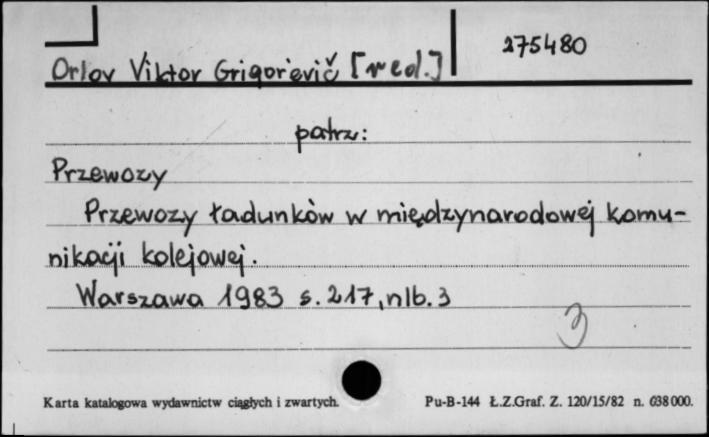 275480
Orlov Viktor Grigor'evič [red.]
patrz:
Przewozy
Przewozy ładunków w międzynarodowej komu-
nikacji kolejowej.
Warszawa 1983 s. 217, nlb. 3
3
Karta katalogowa wydawnictw ciągłych i zwartych.
Pu-B-144 Ł.Z.Graf. Z. 120/15/82 n. 638000.